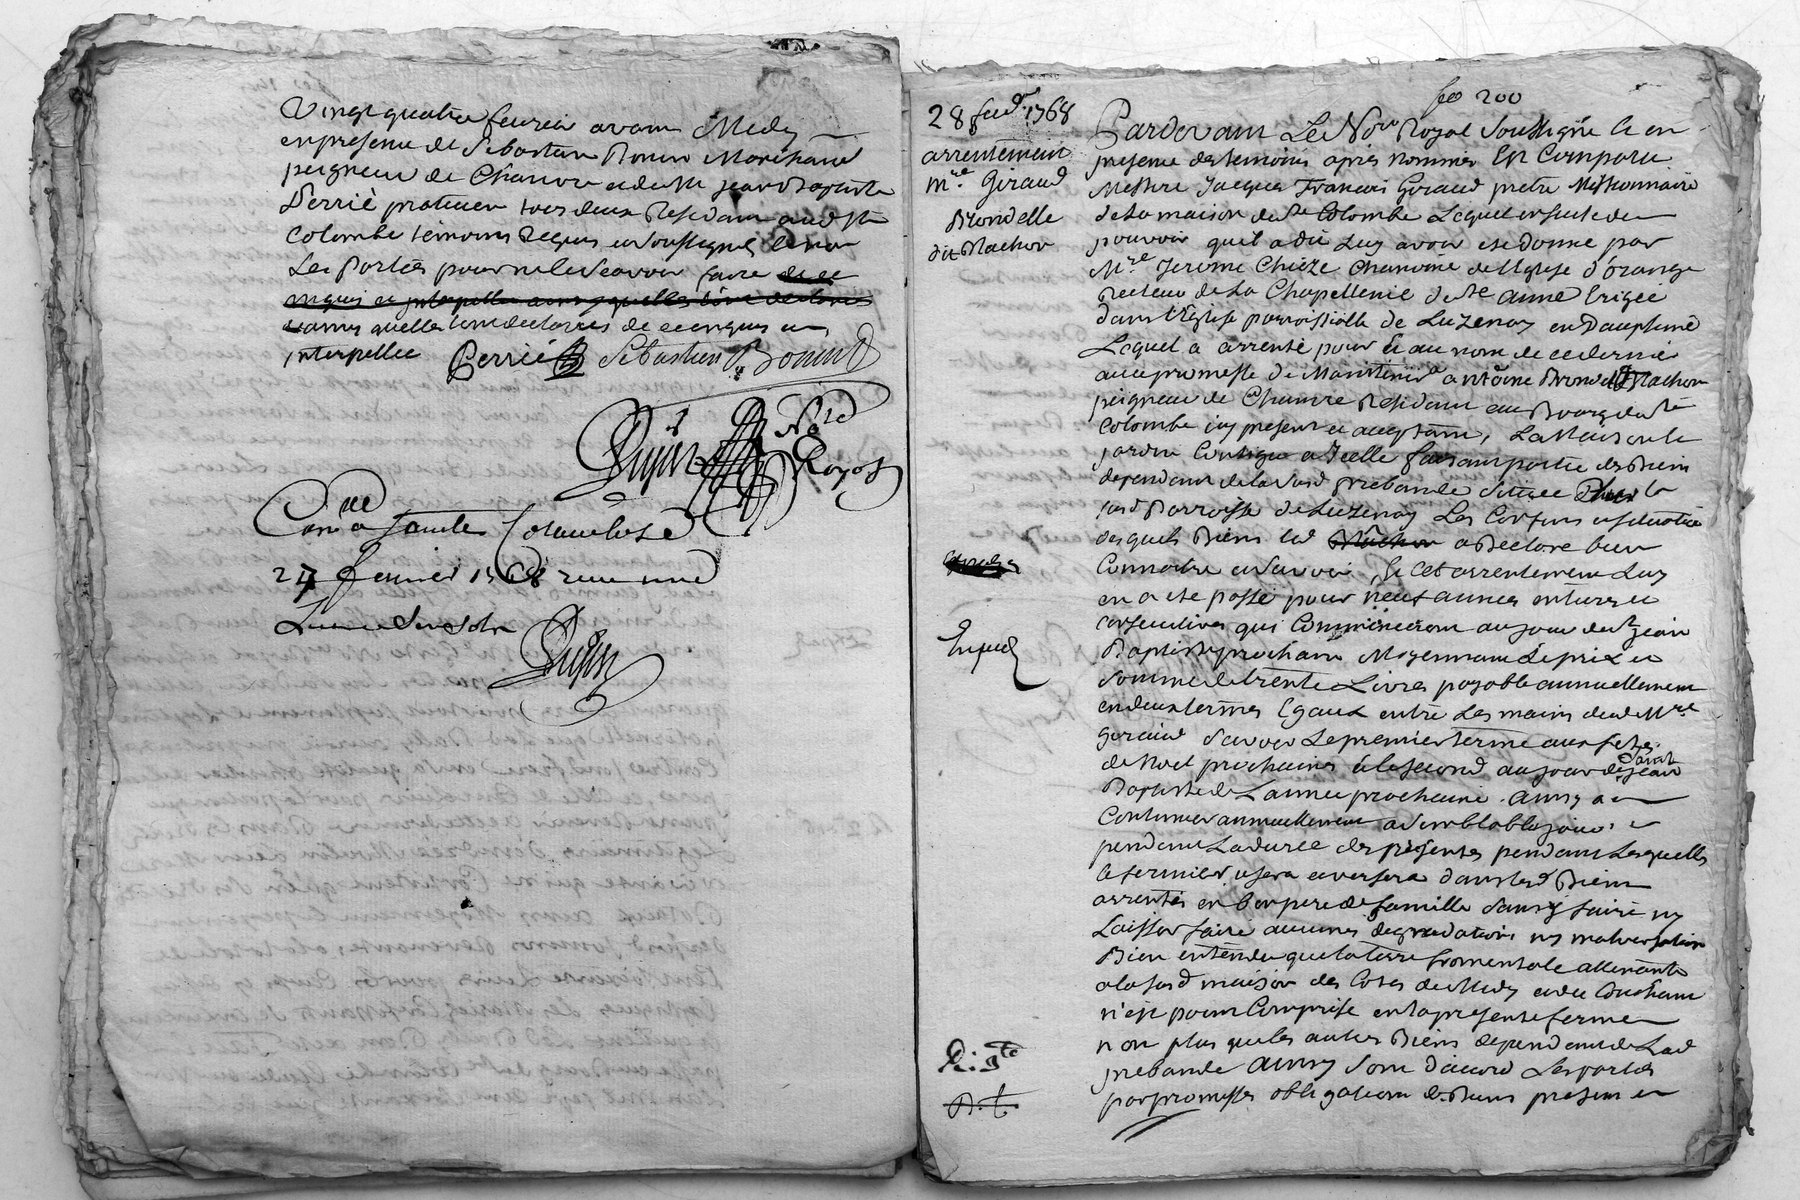 Vingt quatre feurier avam Midy
en presence de Sebastien Bonin Marchand
peigneur de Chanvre et de M jean Baptiste
Perriè praticien tous deux Residant aud Ste
Colombe temoins Requis et soussignes et non
Les Parties pour ne le sçavoir faire de ce
enquis et interpellé ainsy quelles
ainsy quelles lont declarées de ce enquis et
interpellée Perrié Sebastien Bonin
Dujin No.re Royal
Con.lle a Sainte Colombe Le
27 feurier 1768 recu
Dujin
fo 200
28 feu.r 1768
arrentement
m.re Giraud
Brondelle
dit Machon
Pardevant Le No.re Royal Soussigné & en
presence des temoins après nommés Est Comparu
Messire Jacques Francois Giraud pretre Missionnaire
de La maison de Ste Colombe Lequel ensuite du
pouvoir quil a dit Luy avoir eté donné par
M.re Jerome Chieze Chanoine de Leglise d'orange
Recteur de La Chapellenie de Ste anne Erigée
dans L'Eglise parroissialle de Luzenay en Dauphiné
Lequel a arrenté pour & au nom de ce dernier
avec promesse de Maintenir a antoine Brondel Machon
peigneur de Chanvre Residant au Bourg de Ste
Colombe icy present et acceptant, La Maison &
jardin Contigue a Icelle faisant partie des Biens
dependant de lasusd prebande Située dans la
susd Parroisse de Luzenay Les Confins et situation
des quels Biens led Machon a Declaré bien
Connoitre et sçavoir, & Cet arrentement Luy
en a eté passé pour neuf années entieres et
consecutives qui Commenceront au jour de St jean
Baptiste prochain Moyennant Le prix et
somme de trente Livres payable annuellement
en deux termes Egaux entre Les mains dud M.re
Giraud Savoir Le premier terme aux fetes
de Noel prochaines & le second au jour de Saint jean
Baptiste de L'année prochaine ainsy a
Continuer annuellement a semblable jour et
pendant La durée des presentes pendant Lesquelles
le fermier usera et versera dans lesd Biens
arrentés en bon pere de famille sans y faire ny
Laisser faire aucunes degradations ny malversation
Bien entendu que la terre fromentale attenante
a la susd maison des Cotes de Midy et du Couchant
n'est point Comprise en la presente ferme
non plus que les autres Biens dependant de Lad
prebande ainsy Sont d'accord Les parties
par promesses obligations de Biens presens et